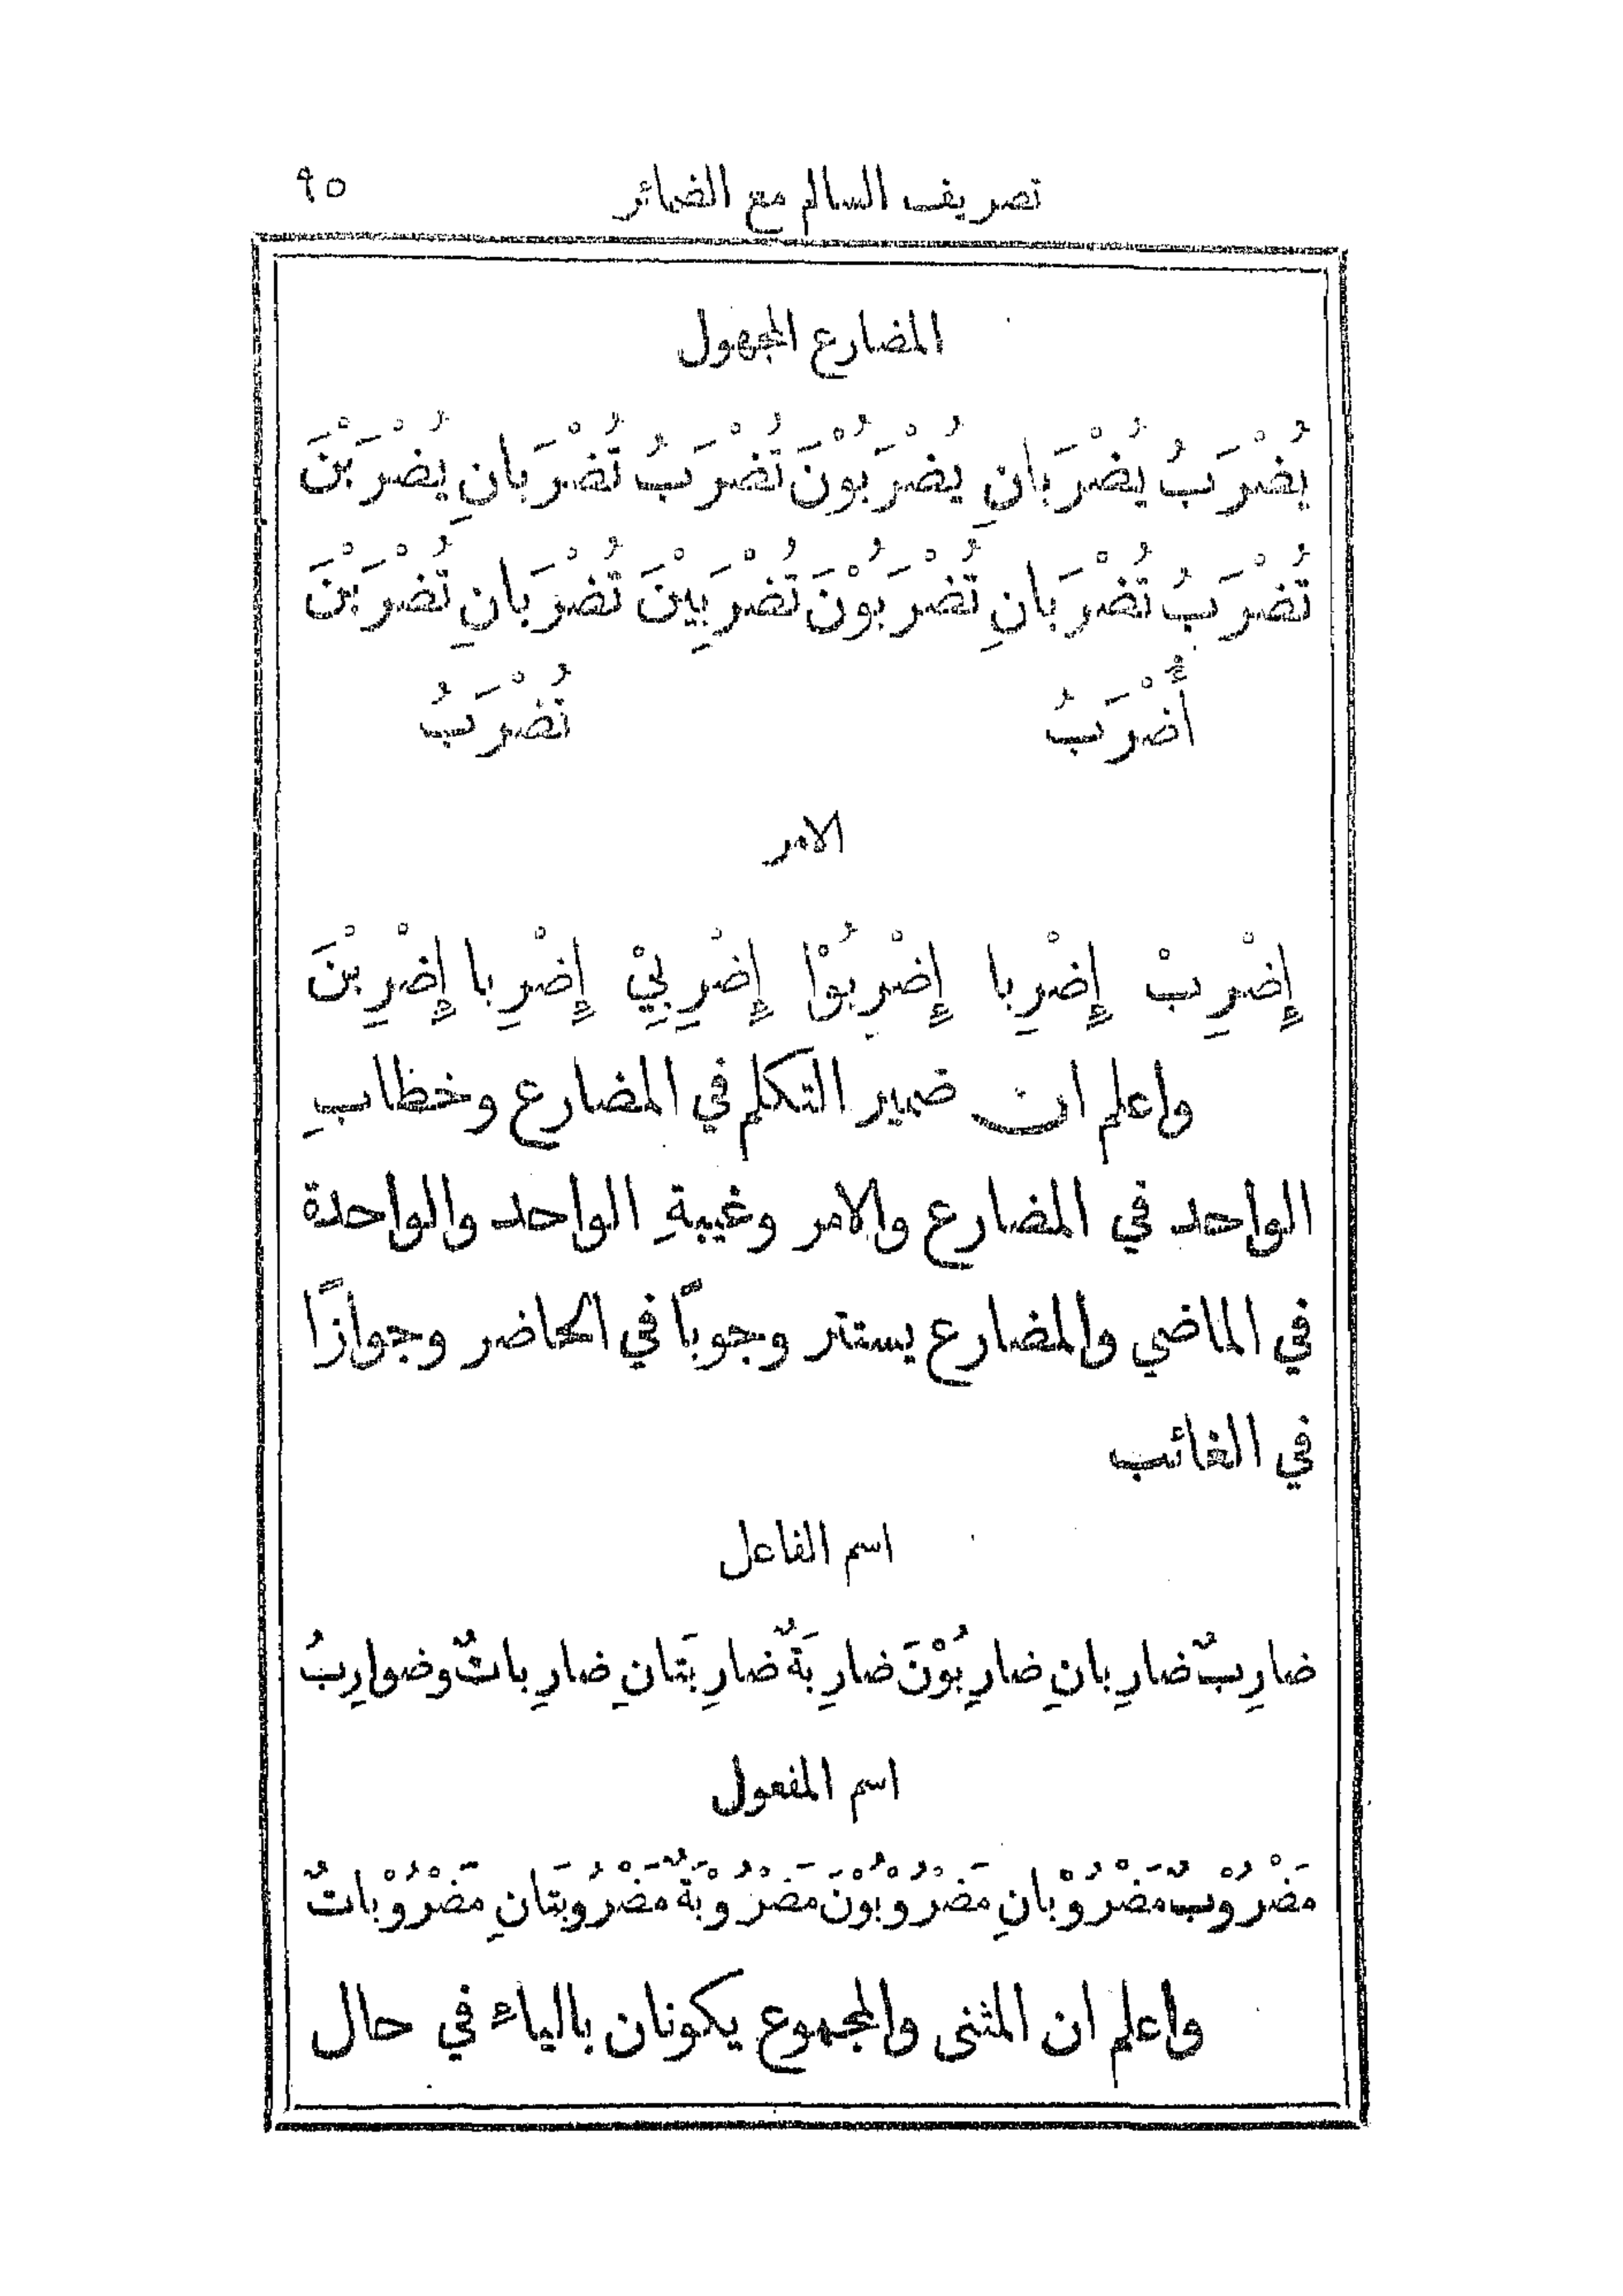 تصريف السالم مع الضمائر ٩٥
المضارع المجهول
يُضْرَبُ يُضْرَبانِ يُضْرَبُوْنَ تُضْرَبُ تُضْرَبانِ يُضْرَبْنَ
تُضْرَبُ تُضْرَبانِ تُضْرَبُوْنَ تُضْرَبِيْنَ تُضْرَبانِ تُضْرَبْنَ
أُضْرَبُ نُضْرَبُ
الامر
إِضْرِبْ إِضْرِبا إِضْرِبُوْا إِضْرِبِيْ إِضْرِبا إِضْرِبْنَ
واعلم ان ضمير التكلم في المضارع وخطابِ
الواحد في المضارع والامر وغيبةِ الواحد والواحدة
في الماضي والمضارع يستتر وجوباً في الحاضر وجوازًا
في الغائب
اسم الفاعل
ضارِبٌ ضارِبانِ ضارِبُوْنَ ضارِبَةٌ ضارِبَتانِ ضارِباتٌ وضوارِبُ
اسم المفعول
مَضْرُوْبٌ مَضْرُوْبانِ مَضْرُوْبُوْنَ مَضْرُوْبَةٌ مَضْرُوبَتَانِ مَضْرُوْباتٌ
واعلم ان المثنى والمجموع يكونان بالياء في حال